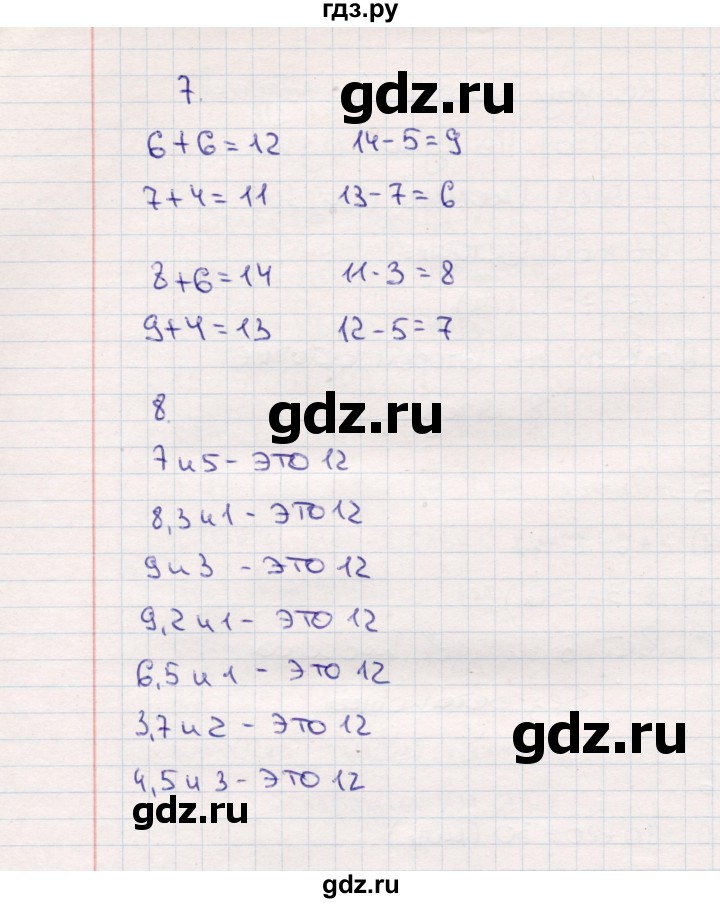 гдз.ру
7.
gdz.ru
6+6=12 14-5=9
7+4=11 13-7=6
8+6=14 11-3=8
9+4=13 12-5=7
8.
gdz.ru
7 и 5 - это 12
8,3 и 1 - это 12
9 и 3 - это 12
9,2 и 1 - это 12
6,5 и 1 - это 12
3,7 и 2 - это 12
gdz.ru
4,5 и 3 - это 12
gdz.ru
gdz.ru